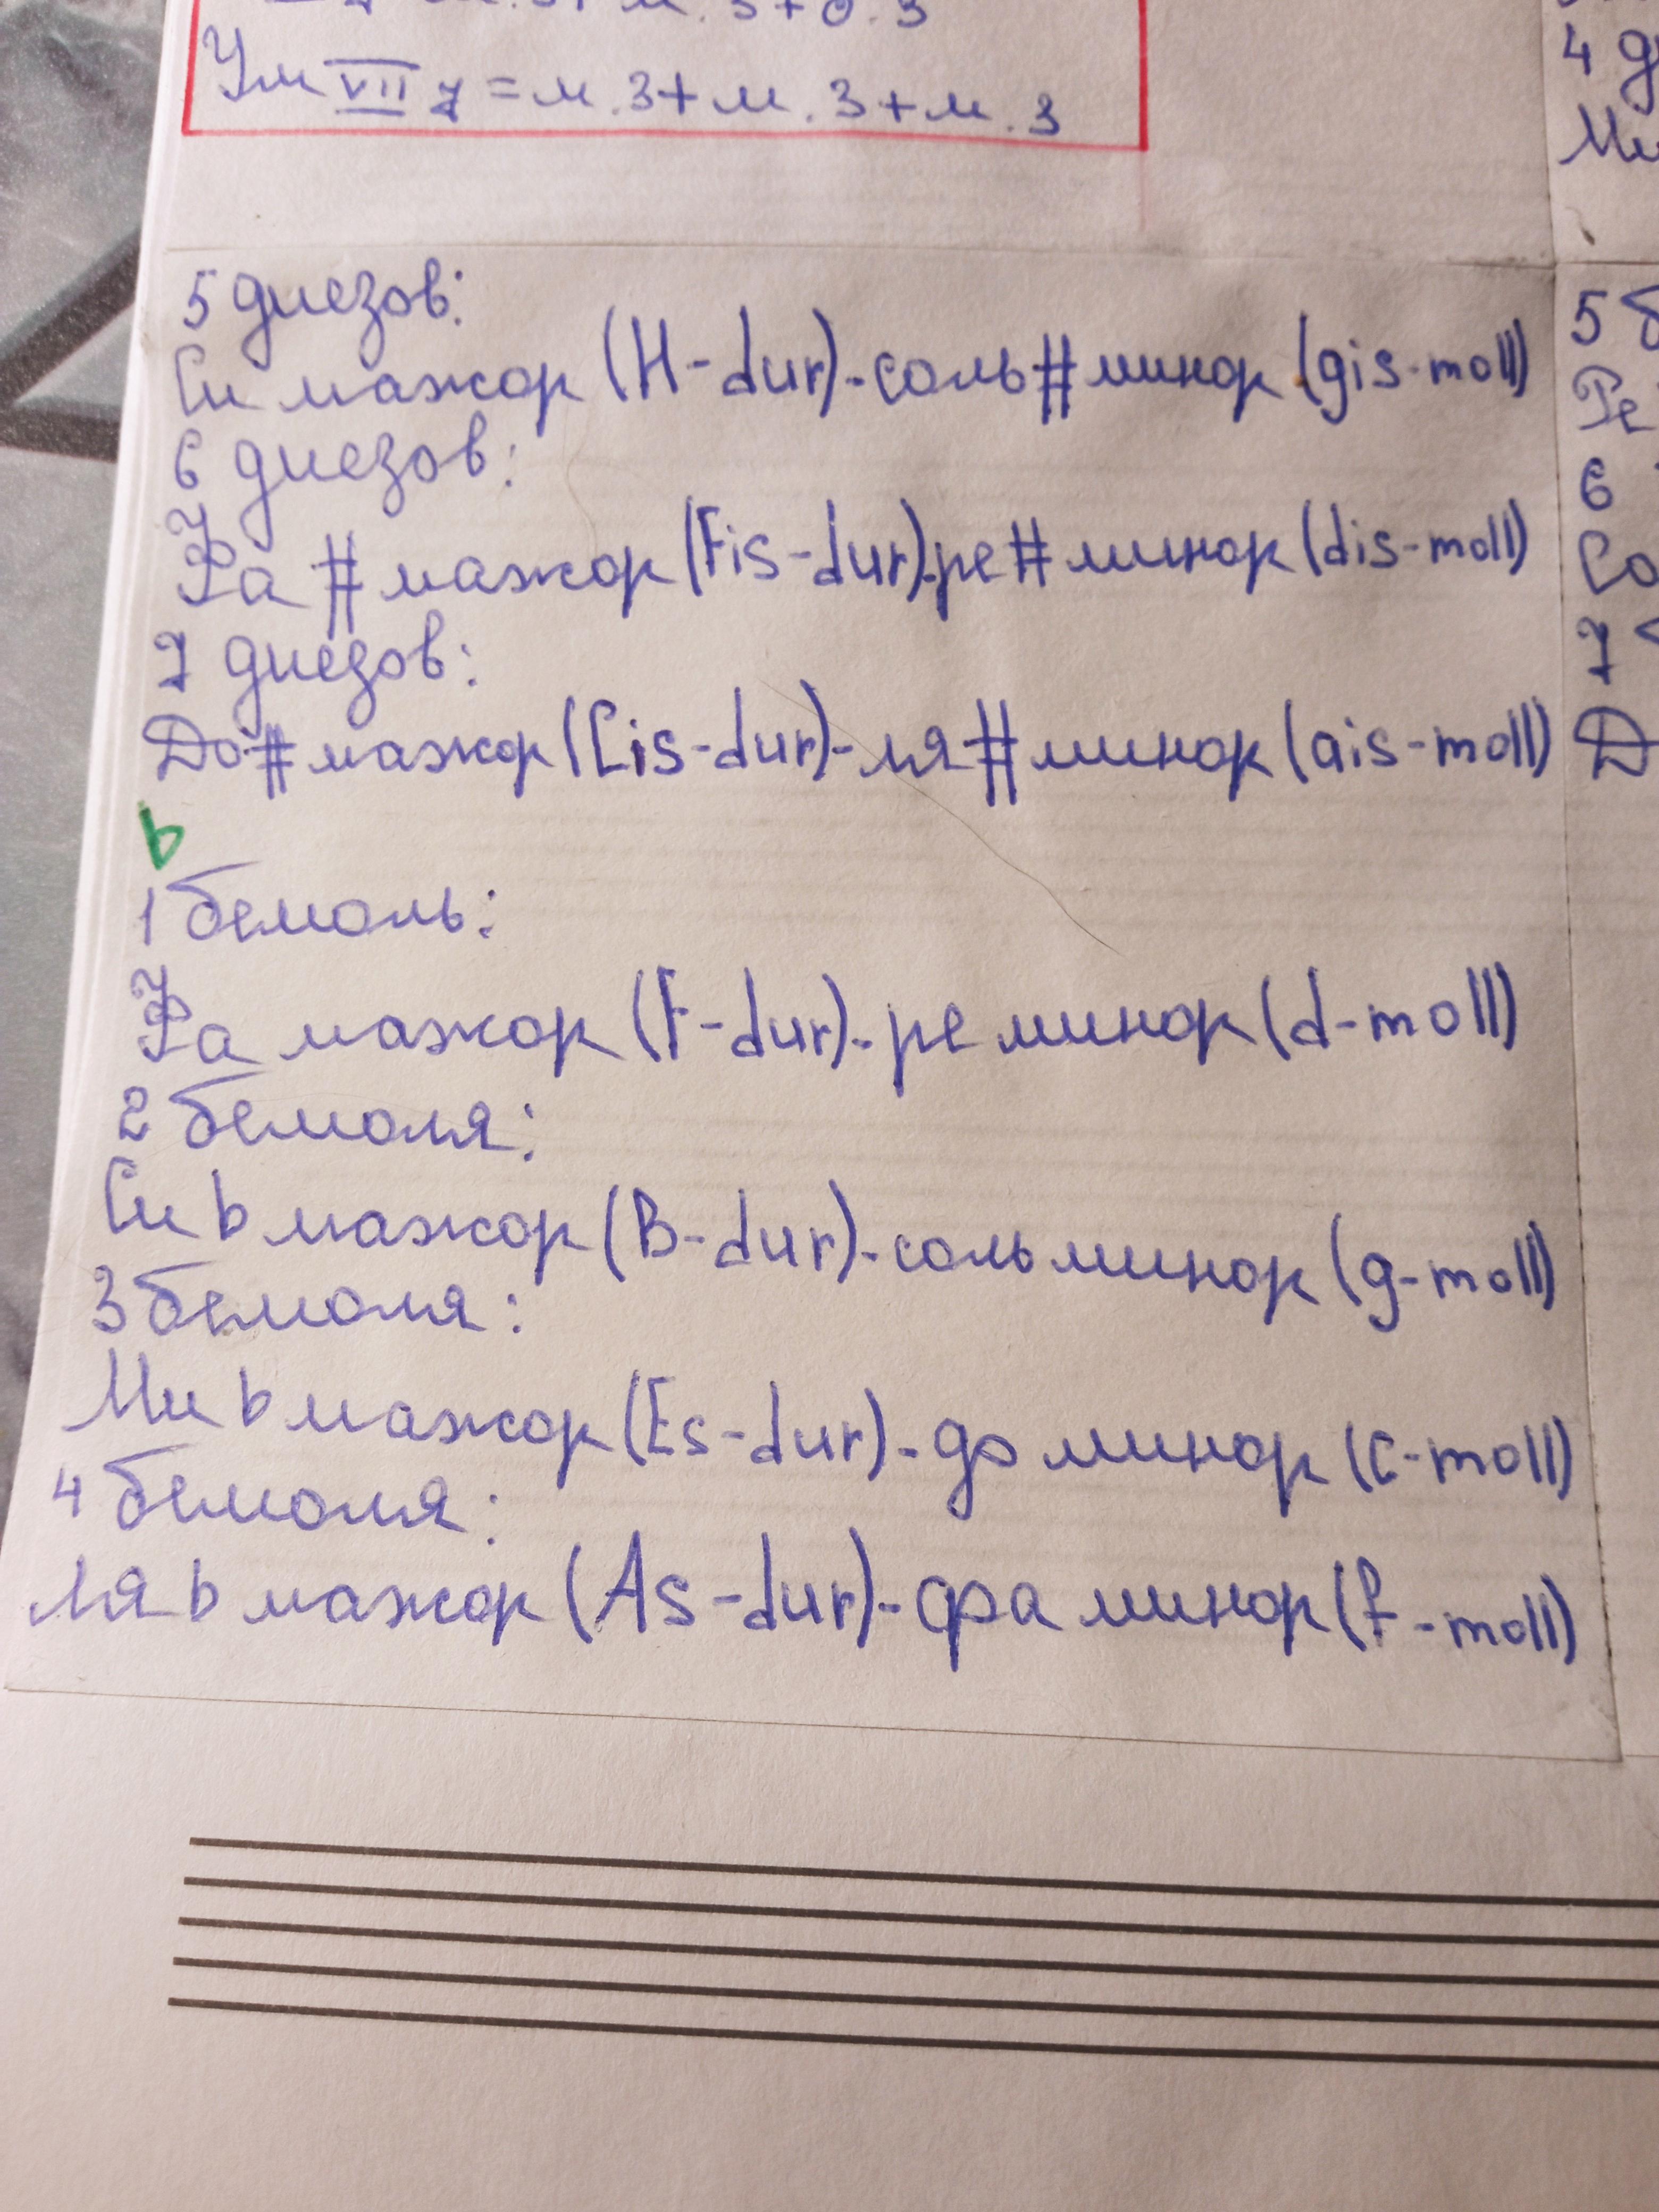 м.3+м.3+б.3
Ум VII 7 = м.3+м.3+м.3
5 диезов:
Си мажор (H-dur)-соль#минор (gis-moll)
6 диезов:
Фа # мажор (Fis-dur)-ре#минор (dis-moll)
7 диезов:
До#мажор (Cis-dur)-ля#минор (ais-moll)
b
1 бемоль:
Фа мажор (F-dur)-ре минор (d-moll)
2 бемоля:
Си b мажор (B-dur)-соль минор (g-moll)
3 бемоля:
Ми b мажор (Es-dur)-до минор (c-moll)
4 бемоля:
Ля b мажор (As-dur)-фа минор (f-moll)
4 д
Ми
5 б
Ре
6
Со
7
Д